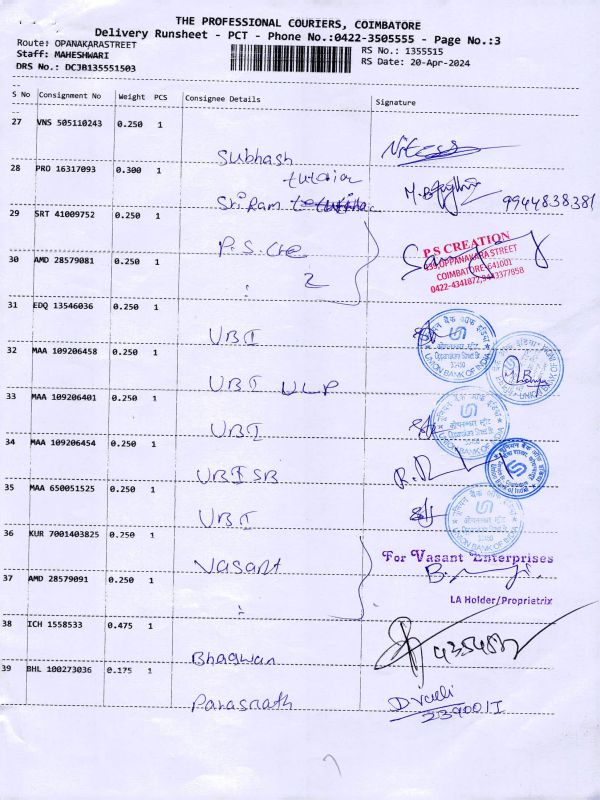 THE PROFESSIONAL COURIERS, COIMBATORE
Delivery Runsheet - PCT - Phone No.:0422-3505555 - Page No.:3
Route: OPANAKARASTREET
Staff: MAHESHWARI
DRS No.: DCJB135551503
RS No.: 1355515
RS Date: 20-Apr-2024
S No Consignment No Weight PCS Consignee Details Signature
27 VNS 505110243 0.250 1
Subhash
28 PRO 16317093 0.300 1
tutorial
Sri Ram
9944838381
29 SRT 41009752 0.250 1
P.S. Cre
30 AMD 28579081 0.250 1
2
P S CREATION
OPPANAKARA STREET
COIMBATORE-641001
31 EDQ 13546036 0.250 1
UBI
32 MAA 109206458 0.250 1
UBI ULP
33 MAA 109206401 0.250 1
UBI
34 MAA 109206454 0.250 1
UBI SB
35 MAA 650051525 0.250 1
UBI
UNION BANK OF INDIA
36 KUR 7001403825 0.250 1
Vasant
For Vasant Enterprises
37 AMD 28579091 0.250 1
LA Holder/Proprietrix
38 ICH 1558533 0.475 1
Bhagwan
39 BHL 100273036 0.175 1
Parasnath